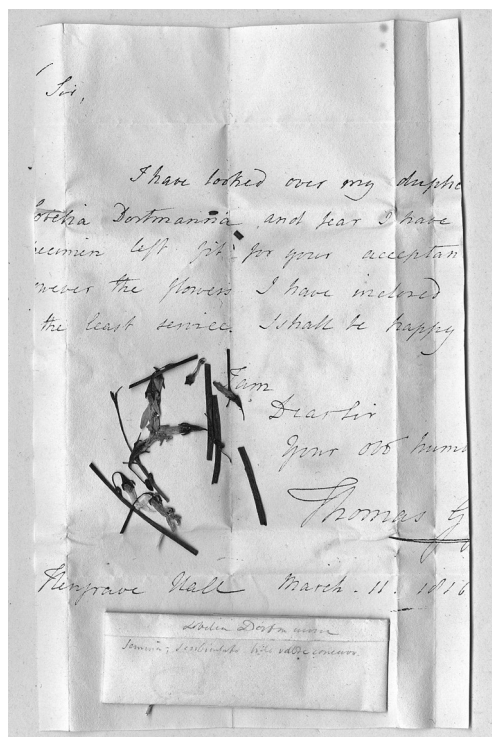 Sir,
I have looked over my duplic
obelia Dortmanna, and fear I have
pecimen left fit for your acceptan
wever the flowers I have inclosed
the least service. I shall be happy
I am
Dear Sir
Your obt hum
Thomas G
Hengrave Hall March. 11. 1816
Lobelia Dortmanna
Semina;